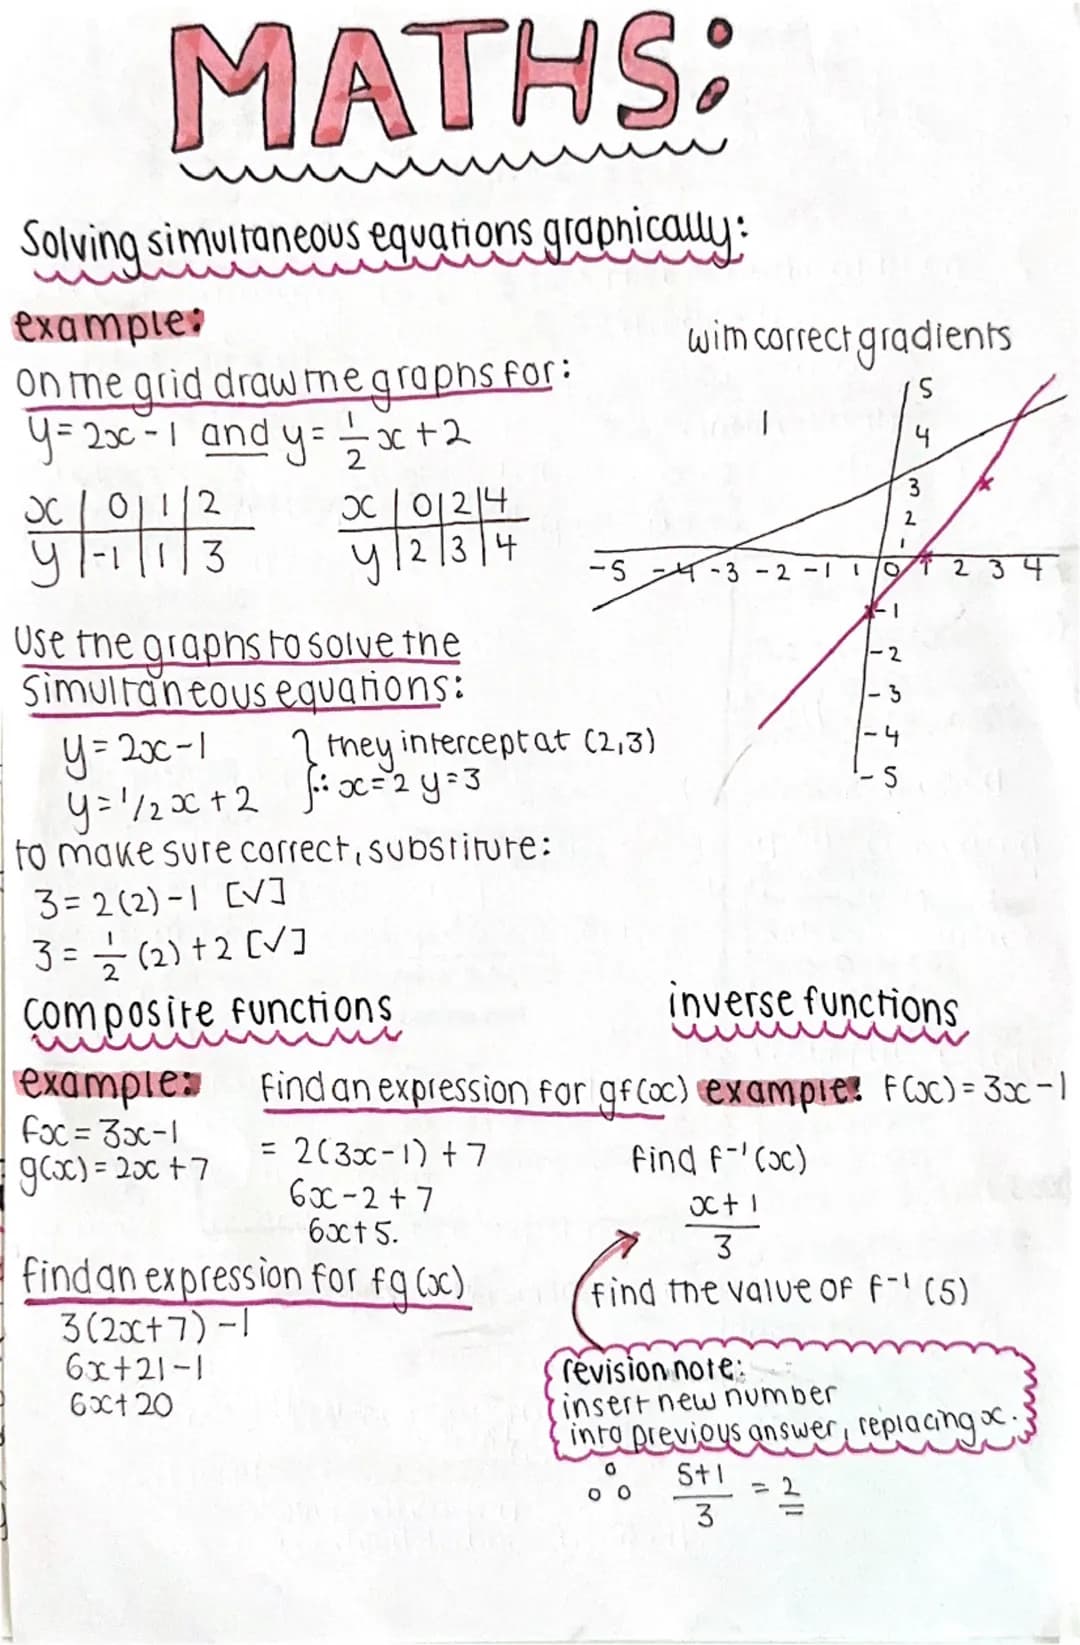 MATHS:
Solving simultaneous equations graphically:
example:
on the grid draw the graphs for:
y=2x-1 and y=1/2x+2
x | 0 | 1 | 2
y | -1 | 1 | 3
x | 0 | 2 | 4
y | 2 | 3 | 4
with correct gradients
5
4
3
2
1
-5 -4 -3 -2 -1 0 1 2 3 4
-1
-2
-3
-4
-5
Use the graphs to solve the
Simultaneous equations:
y=2x-1
y=1/2x+2
} they intercept at (2,3)
∴ x=2 y=3
to make sure correct, substitute:
3=2(2)-1 [✓]
3=1/2(2)+2 [✓]
composite functions
example:
fx=3x-1
g(x)=2x+7
find an expression for gf(x)
=2(3x-1)+7
6x-2+7
6x+5.
find an expression for fg(x)
3(2x+7)-1
6x+21-1
6x+20
inverse functions
example: f(x)=3x-1
find f⁻¹(x)
x+1
3
find the value of f⁻¹(5)
revision note:
insert new number
into previous answer, replacing x.
5+1
3
=2